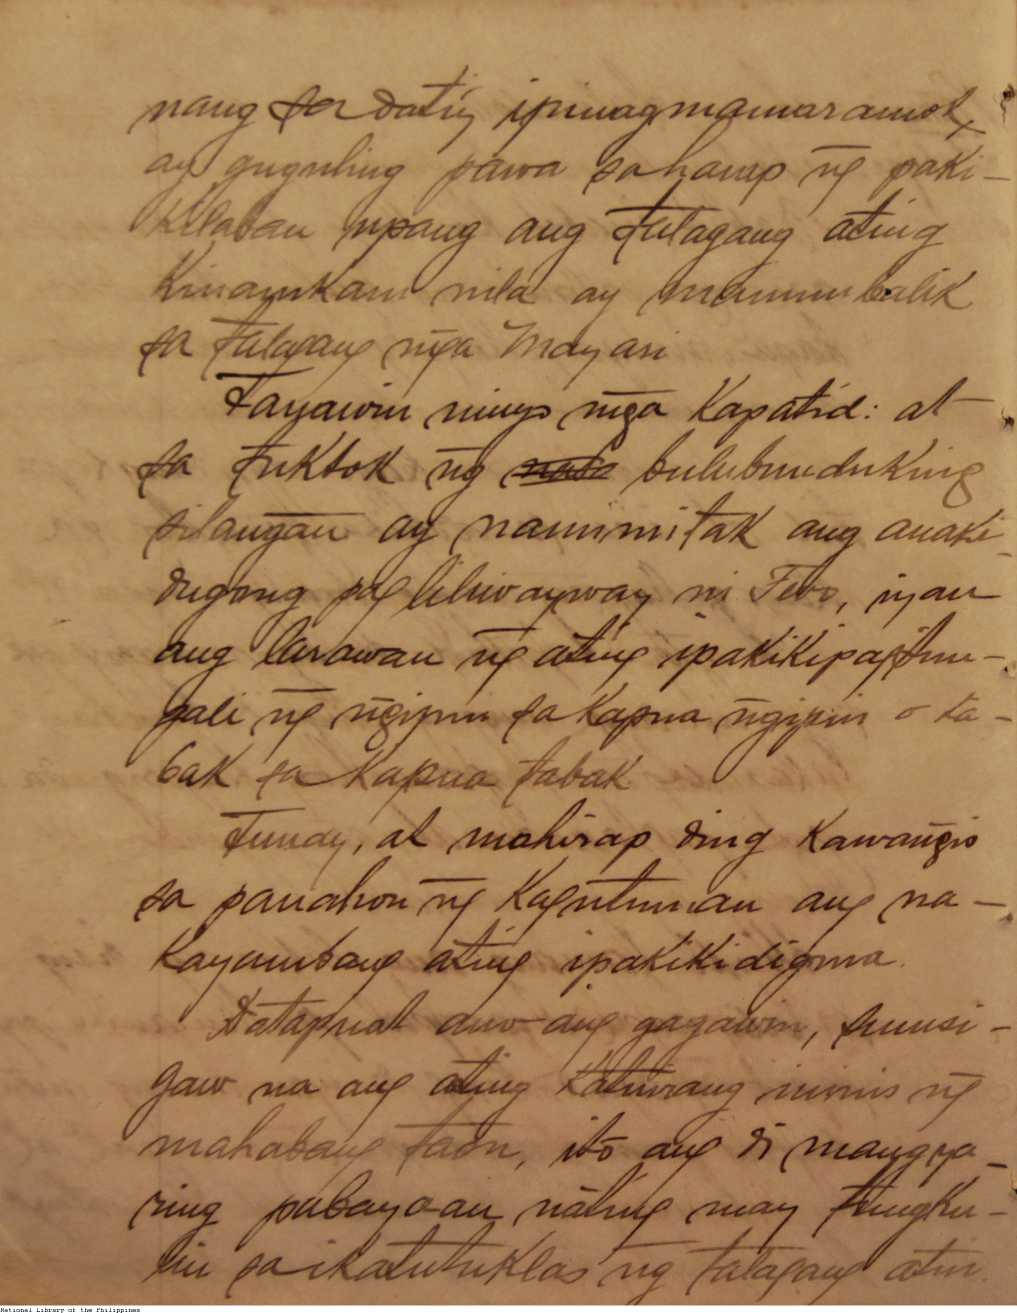 nang sa dating ipinagmamaramot,
ay guguling pawa sa harap ng paki-
kilaban upang ang talagang ating
kinamkam nila ay manumbalik
sa talagang mga Mayari
Tanawin ninyo mḡa Kapatid: at
sa tuktok n̄g bulubunduking
silan̄gan ay namimitak ang anaki
dugong pag lilinayway ni Febo, iyan
ang larawan n̄g ating ipakikipag
n̄g n̄gipin sa kapua n̄gipin o ta-
bak sa kapua tabak
Tunay, at mahirap ding kawan̄gis
sa panahon n̄g kagutuman ang na-
kayambang ating ipakikidigma.
Datapuat ano ang gagawin, sumisi-
gaw na ang ating katuirang ininis n̄g
mahabang taon, ito ang di mangya-
ring pabayaan nating may tungku-
lin sa ikatutuklas ng talagang atin.
National Library of the Philippines